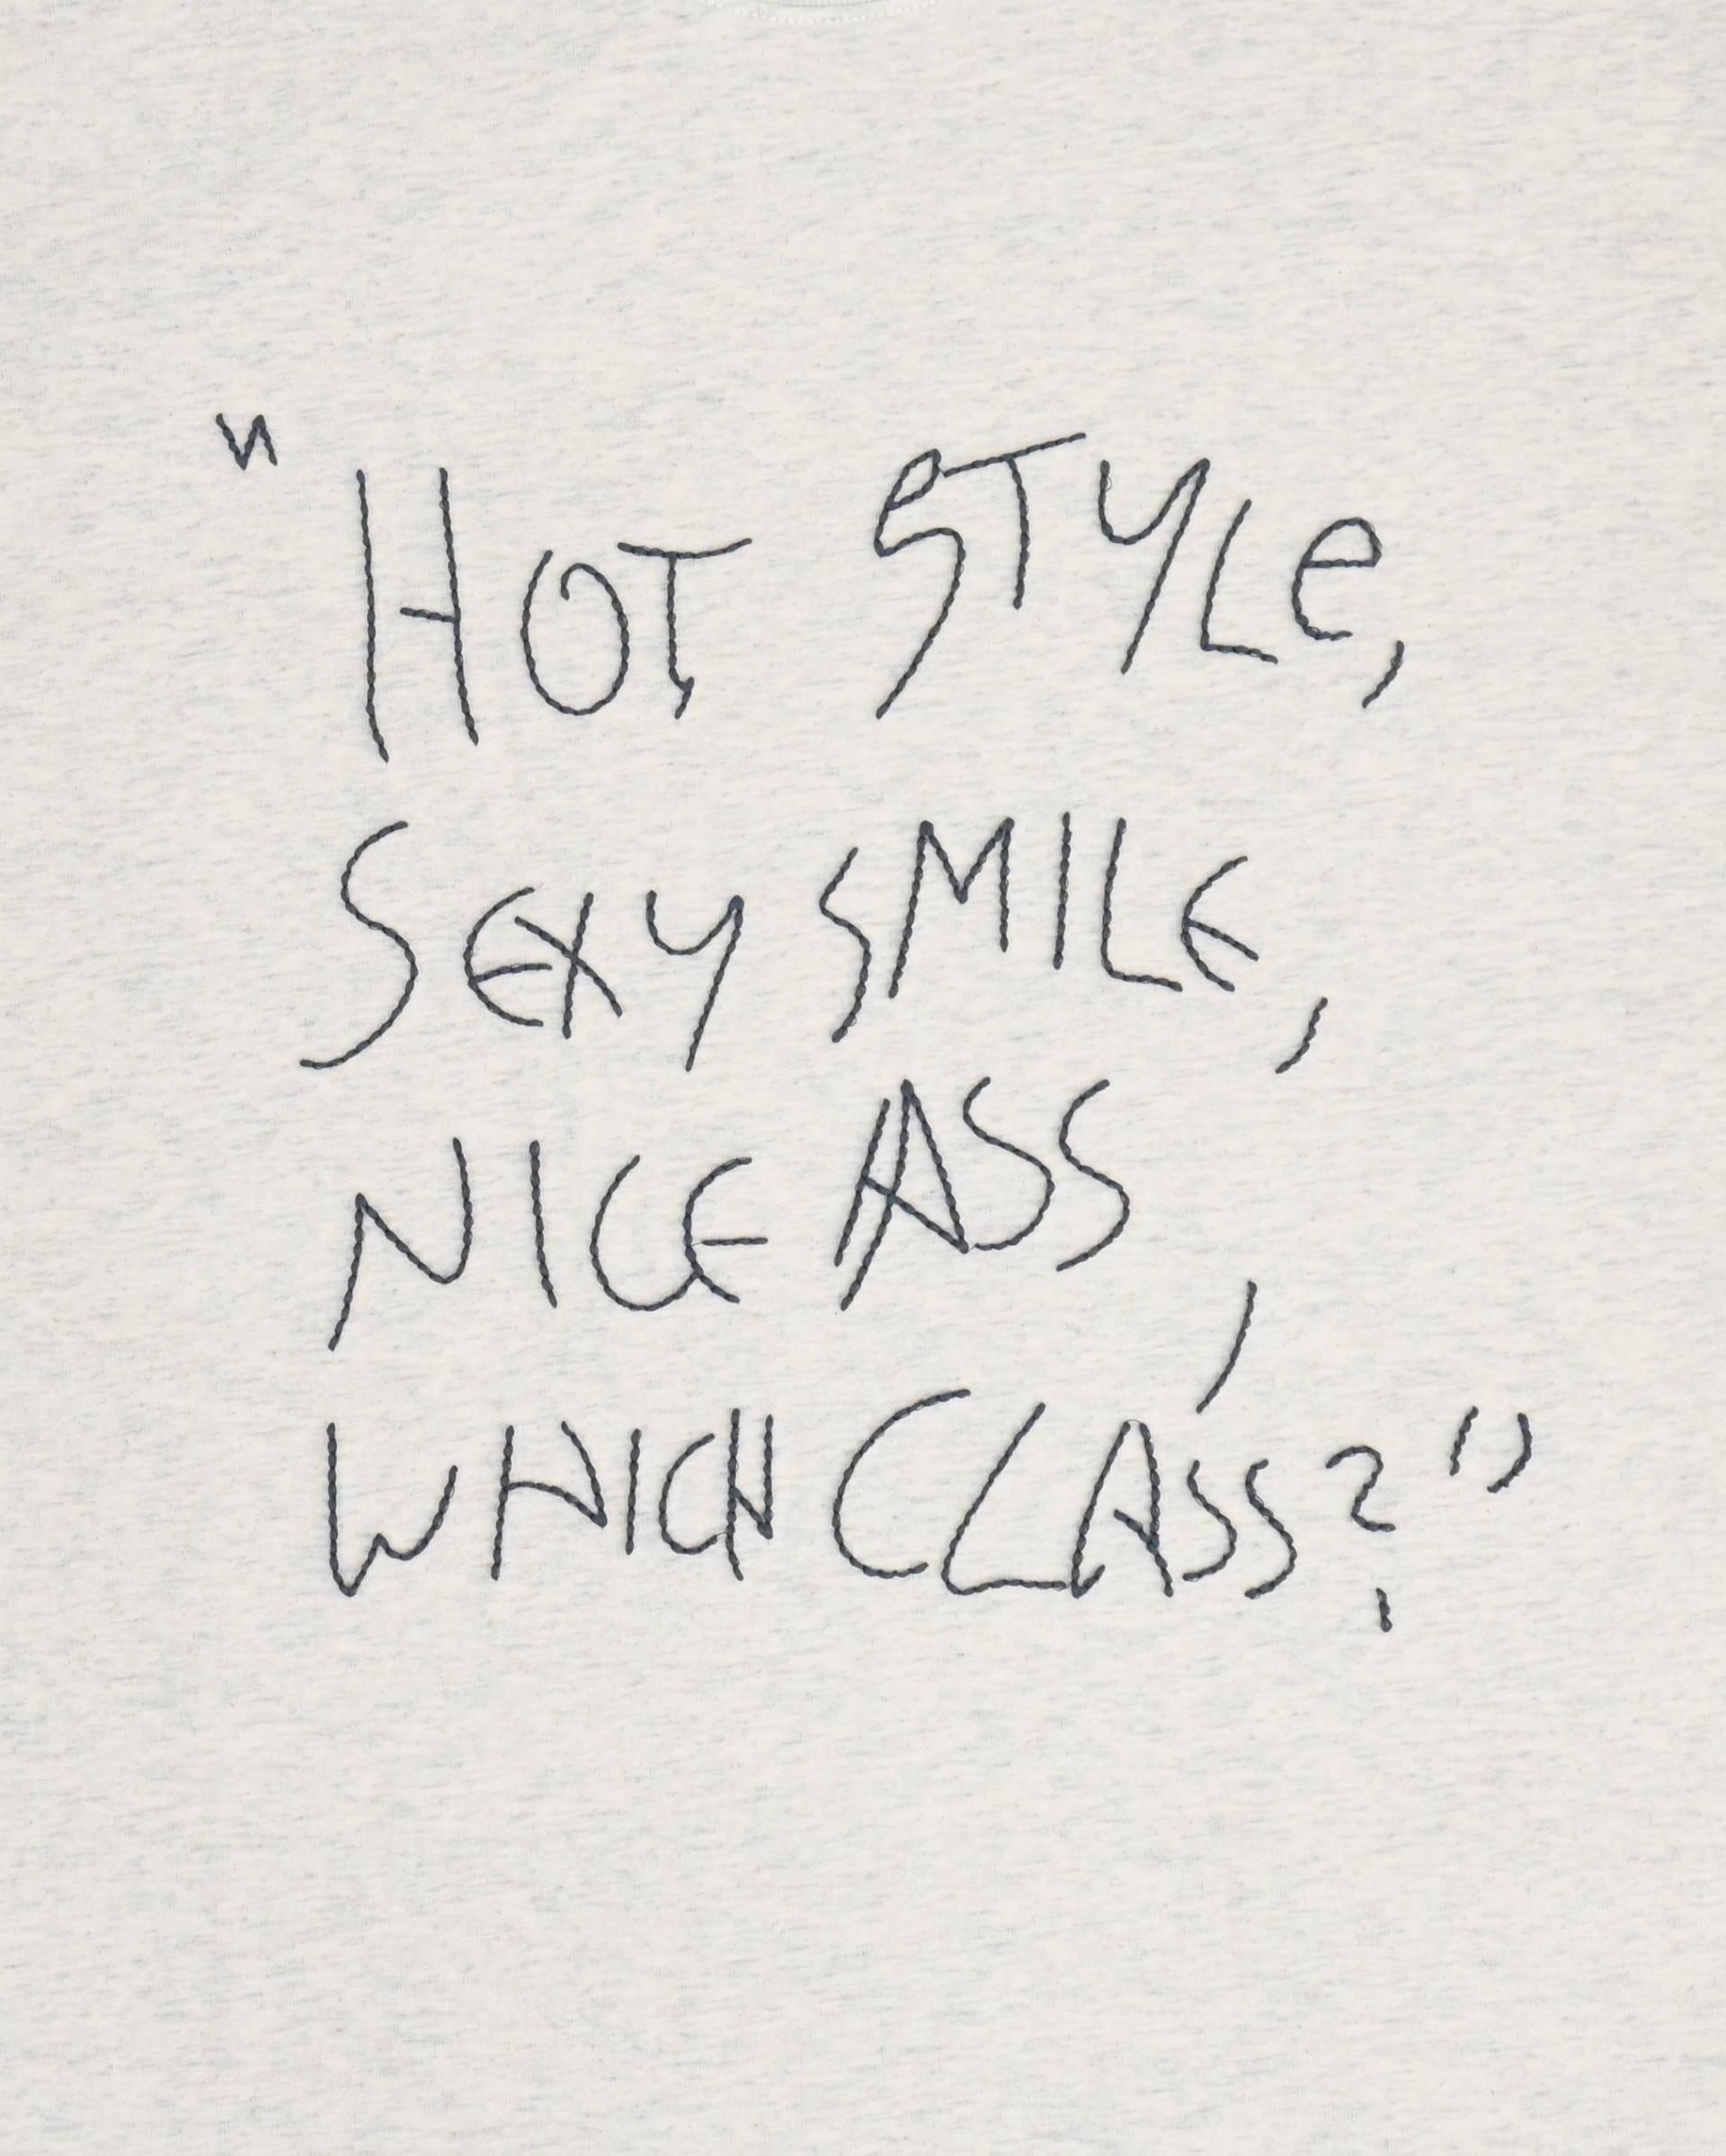 "HOT STYLe,
SEXY SMILE,
NICE ASS,
WHICH CLASS?"